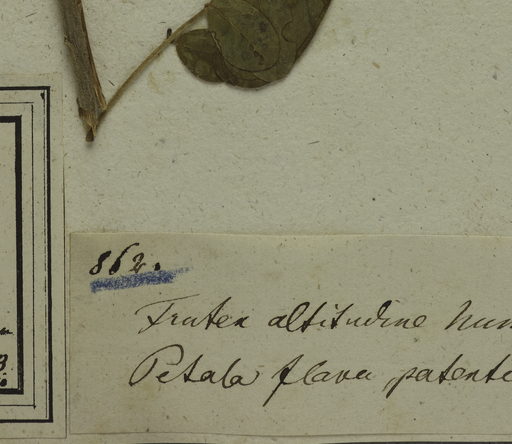 862.
Frutex altitudine hum
Petala flava patent